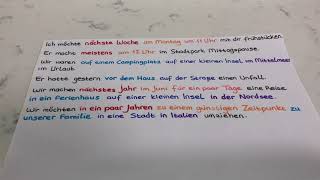 Ich möchte nächste Woche am Montag um 11 Uhr mit dir frühstücken.
Er macht meistens um 12 Uhr im Stadtpark Mittagspause.
Wir waren auf einem Campingplatz auf einer kleinen Insel im Mittelmeer
im Urlaub.
Er hatte gestern vor dem Haus auf der Straße einen Unfall.
Wir machen nächstes Jahr im Juni für ein paar Tage eine Reise
in ein Ferienhaus auf einer kleinen Insel in der Nordsee.
Wir möchten in ein paar Jahren zu einem günstigen Zeitpunkt zu
unserer Familie in eine Stadt in Italien umziehen.